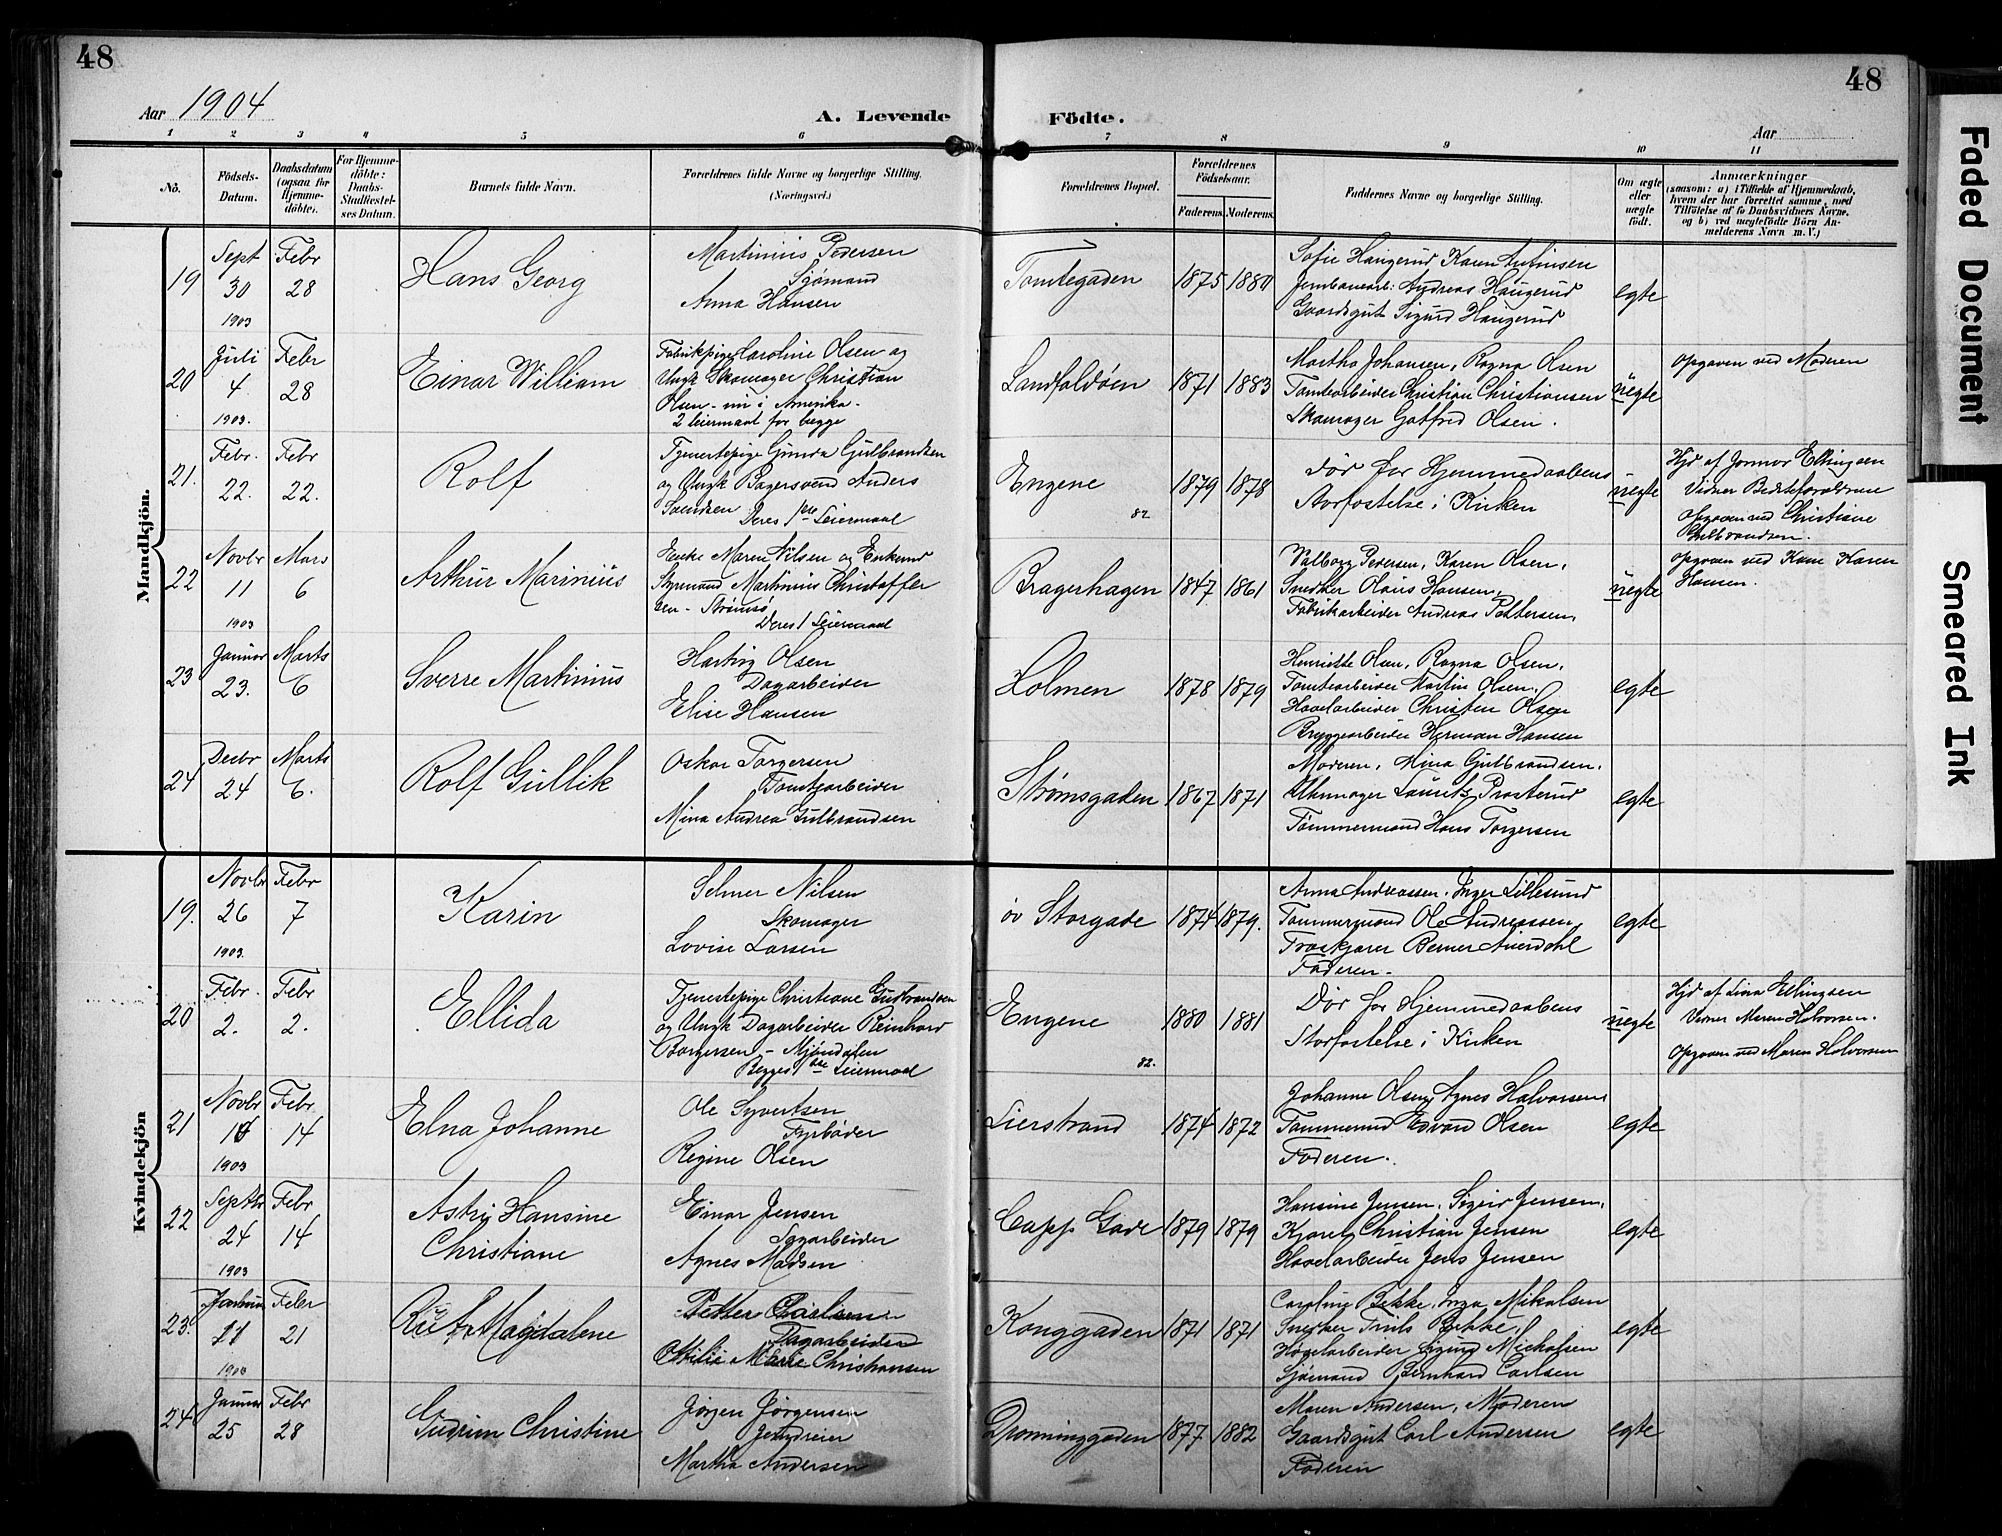 48
48
Aar 1904
A. Levende
Födte.
Aar
1 2 3 4 5 6 7 8 9 10 11
No.
Födsels-Datum.
Daabsdatum (ogsaa for Hjemme-döbte).
For Hjemme-döbte: Daabs-Stadfæstel-ses Datum.
Barnets fulde Navn.
Forældrenes fulde Navne og borgerlige Stilling.
(Næringsvei.)
Forældrenes Bopæl.
Forældrenes Födselsaar.
Faderens. Moderens.
Faddernes Navne og borgerlige Stilling.
Om ægte eller uægte födt.
Anmærkninger
(saasom: a) i Tilfælde af Hjemmedaab,
hvem der har forrettet samme, med
Tilföielse af to Daabsvidners Navne,
og b) ved uægtefödte Börn An-
melderens Navn m. V.)
Mandkjön.
19 Sept 30 1903 Febr 28 Hans Georg
Martinius Pedersen
Sjømand
Anna Hansen
Tomtegaden 1875 1880
Sofie Haugerud Karen
Jernbanearb: Andreas Haugerud
Gaardsgut Sigurd Haugerud
egte
20 Juli 4. 1903. Febr 28 Einar William
Fabrikpige Caroline Olsen og
Ungk Skomager Christian
Olsen - nu i Amerika -
2 Leiermaal for begge
Landfaldøen 1871 1883
Martha Johansen, Ragna Olsen
Tomtearbeider Christian Christiansen
Skomager Gotfred Olsen.
uegte
opgaven ved Moderen
21. Febr. 22. Febr 22. Rolf
Tjenestepige Gunda Gulbrandsen
og Ungk Bagersvend Anders
Svendsen Deres 1ste Leiermaal
Engene 82 1879 1878
Dør før Hjemmedaabens
Stadfæstelse i Kirken
uegte
Hjd af Jormor Ellingsen
Vidner Bedsteforældrene
Opgaven ved Christiane
Gulbrandsen.
22 Novbr 11 1903 Mars 6 Arthur Marinius
Enke Maren Nilsen og Enkemd
Styrmand Martinius Christoffer
sen - Strømsø
Deres 1 Leiermaal
Bragerhagen 1847 1861
Valborg Pedersen, Karen Olsen,
Snedker Olaus Hansen,
Fabrikarbeider Andreas Pettersen,
uegte
opgaven ved Kone Karen
Hansen.
23 Januar 23. Marts 6 Sverre Martinius
Hartvig Olsen
Dagarbeider
Elise Hansen
Holmen 1878 1879
Henriette Olsen, Ragna Olsen,
Tomtearbeider Martin Olsen.
Høvelarbeider Christen Olsen
Bryggearbeider Herman Hansen
egte
24 Decbr 24 Marts 6. Rolf Gullik
Oskar Torgersen
Tomtearbeider
Mina Andrea Gulbrandsen
Strømsgaden 1867 1871
Moderen, Mina Gulbrandsen,
Uhrmager Laurits
Tømmermand Hans Torgersen
egte
Kvindekjön
19. Novbr 26 1903. Febr 7 Karin
Selmer Nilsen
Skomager
Lovise Larsen
øv Storgade 1874 1879.
Anna Andreassen, Inger Lillesund
Tømmermand Ole Andreassen
Træskjærer Berner
Faderen.
egte
20 Febr. 2. Febr 2. Ellida
Tjenestepige Christiane Gulbrandsen
og Ungk Dagarbeider Reinhard
Borgersen - Mjøndalen
Begges 1ste Leiermaal
Engene 82. 1880 1881
Dør før Hjemmedaabens
Stadfæstelse i Kirken
uegte
Hjd af Lina Ellingsen
Vidner Maren Halvorsen.
Opgaven ved Maren Halvorsen
21 Novbr 1903 Febr 14 Elna Johanne
Ole Syvertsen
Fyrbøder
Regine Olsen
Lierstrand 1874 1872
Johanne Olsen, Agnes Halvorsen,
Tømmermd Edvard Olsen
Faderen.
egte
22 Septbr 24 1903 Febr 14 Astri Hansine
Christiane
Einar Jensen
Sagarbeider
Agnes Madsen
Capp Gade 1879 1879
Hansine Jensen, Sigrid Jensen,
Kjørel Christian Jensen
Høvelarbeider Jens Jensen
egte
23. 11 1903 Febr 21 Ruth Magdalene
Petter Carlsen
Dagarbeider
Ottilie Marie Christiansen
Konggaden 1871 1871
Caroline Bekke, Inga Mikalsen
Snedker Truls Bekke,
Høvelarbeider Sigurd Michalsen
Sjømand Bernhard Carlsen
egte
24 Januar 25 Febr 28 Gudrun Christine
Jørgen Jørgensen
Jerndreier
Martha Andersen
Dronninggaden 1877 1882
Maren Andersen, Moderen
Gaardsgut Carl Andersen
Faderen
egte
Faded Document
Smeared Ink